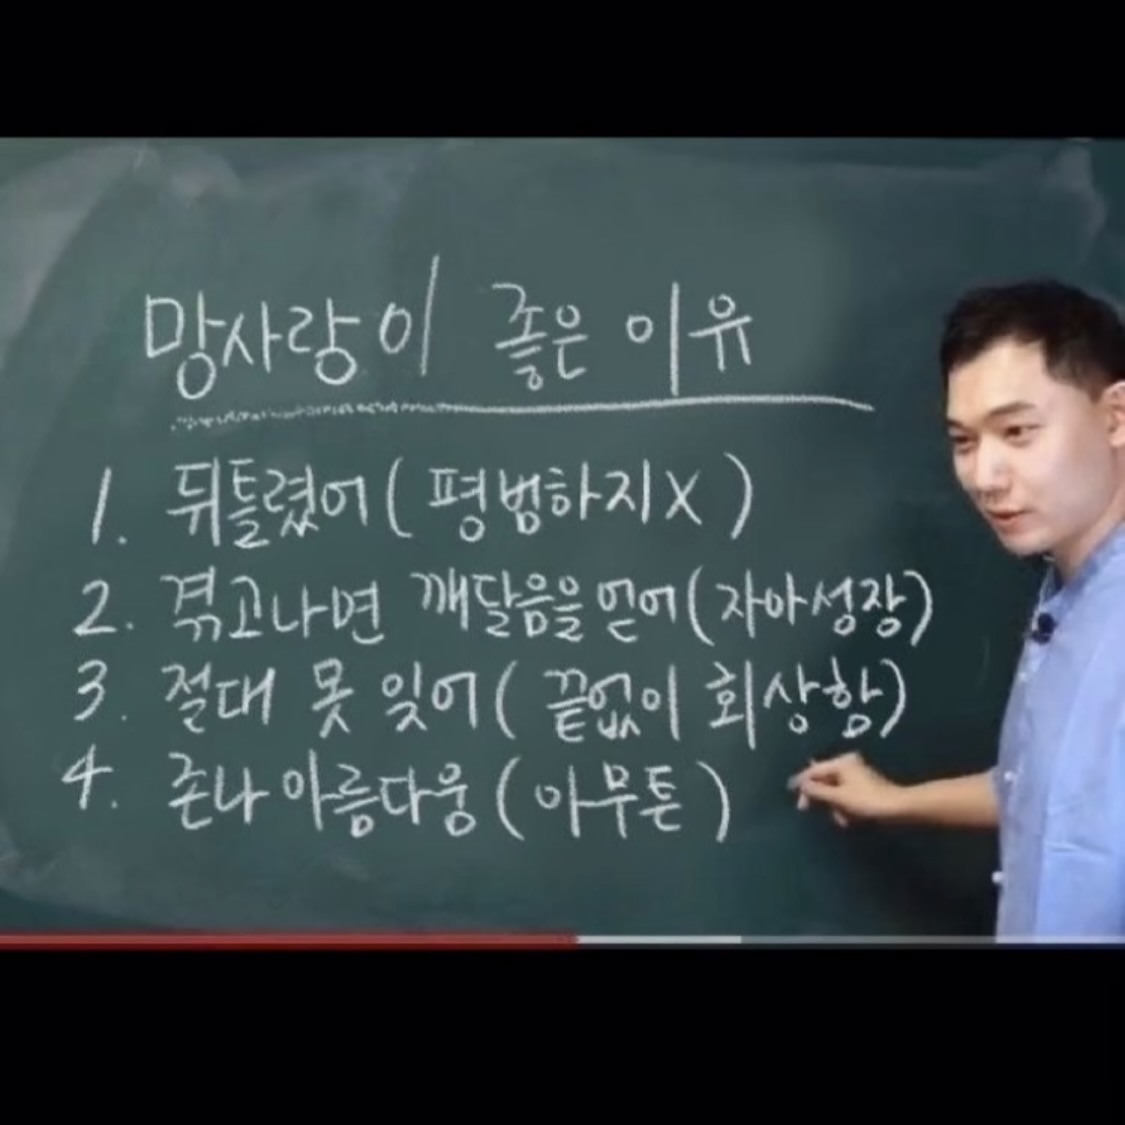 망사랑이 좋은 이유
1. 뒤틀렸어(평범하지X)
2. 겪고나면 깨달음을 얻어(자아성장)
3. 절대 못 잊어(끝없이 회상함)
4. 존나 아름다움(아무튼)